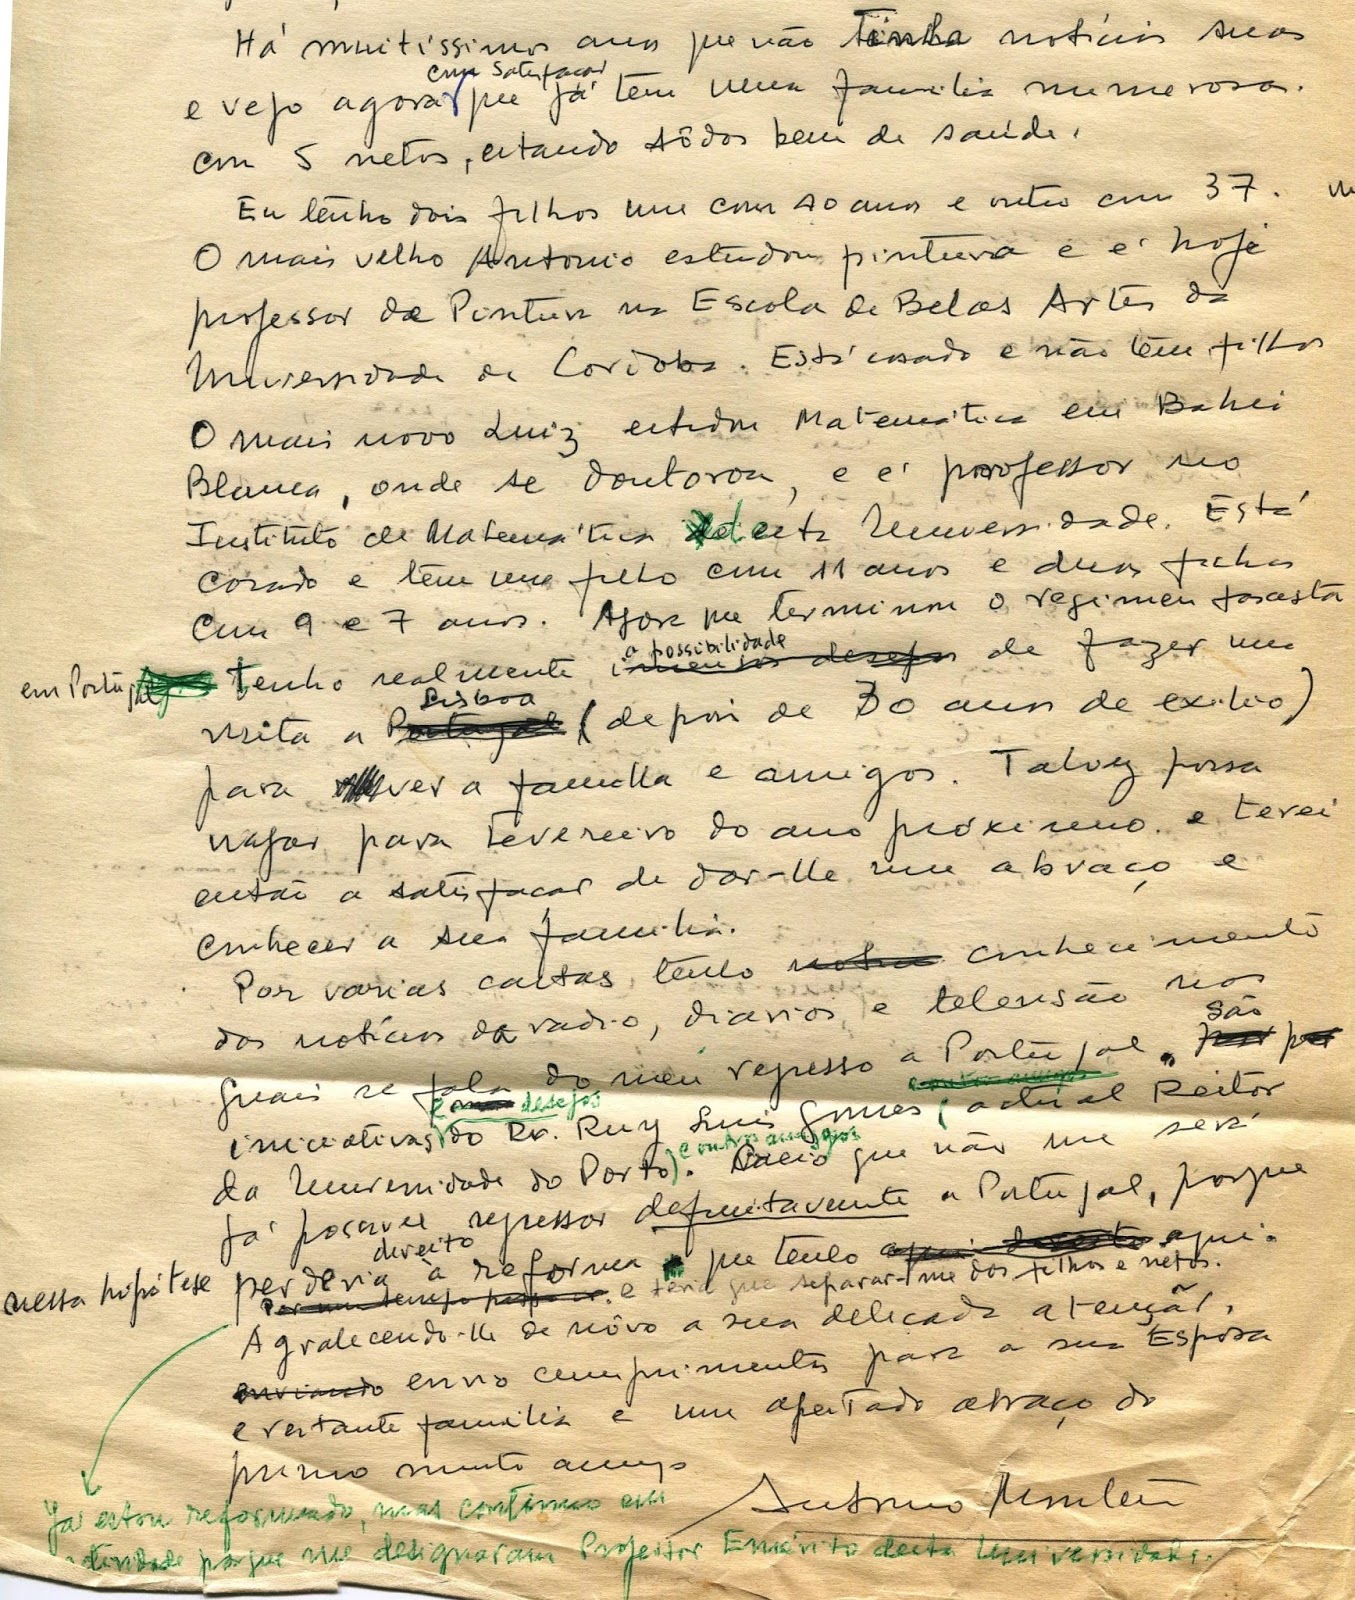 Há muitíssimos anos que não tinha notícias suas
com satisfaçar
e vejo agora que já tem uma familia numerosa.
com 5 netos, estando tôdos bem de saúde.
Eu tenho dois filhos um com 40 anos e outro com 37.
O mais velho Antonio estudou pintura e é hoje
professor de Pintura na Escola de Belas Artes da
Universidade de Cordoba. Está casado e não tem filhos
O mais novo Luiz estudou Matematica em Bahia
Blanca, onde se doutorou, e é professor no
Instituto de Matemática desta Universidade. Está
casado e tem um filho com 11 anos e duas filhas
com 9 e 7 anos. Agora que terminou o regimen fascista
a possibilidade
em Portugal tenho realmente imensos desejos de fazer uma
Lisboa
visita a Portugal (depois de 30 anos de exilio)
para ver a familia e amigos. Talvez possa
viajar para Fevereiro do ano próximo. e terei
então a satisfaçar de dar-lhe um abraço e
conhecer a sua familia.
Por varias cartas tenho conhecimento
das notícias da radio, diarios e televisão nos
São
quais se fala do meu regresso a Portugal.
e desejos e outros amigos
iniciativas do Dr. Ruy Luis Gomes (actual Reitor
e outros amigos
da Universidade do Porto). Receio que não me será
já possivel regressar definitavamente a Portugal, porque
direito
nessa hipótese perderia à reforma que tenho aqui.
e teria que separar-me dos filhos e netos.
Agradecendo-lhe de nôvo a sua delicada atenção,
enviando envio cumprimentos para a sua Esposa
e restante familia e um apertado abraço do
primo muito amigo
Antonio Monteiro
Já estou reformado, mas continuo em
atividade porque me designaram Professor Emérito desta Universidade.